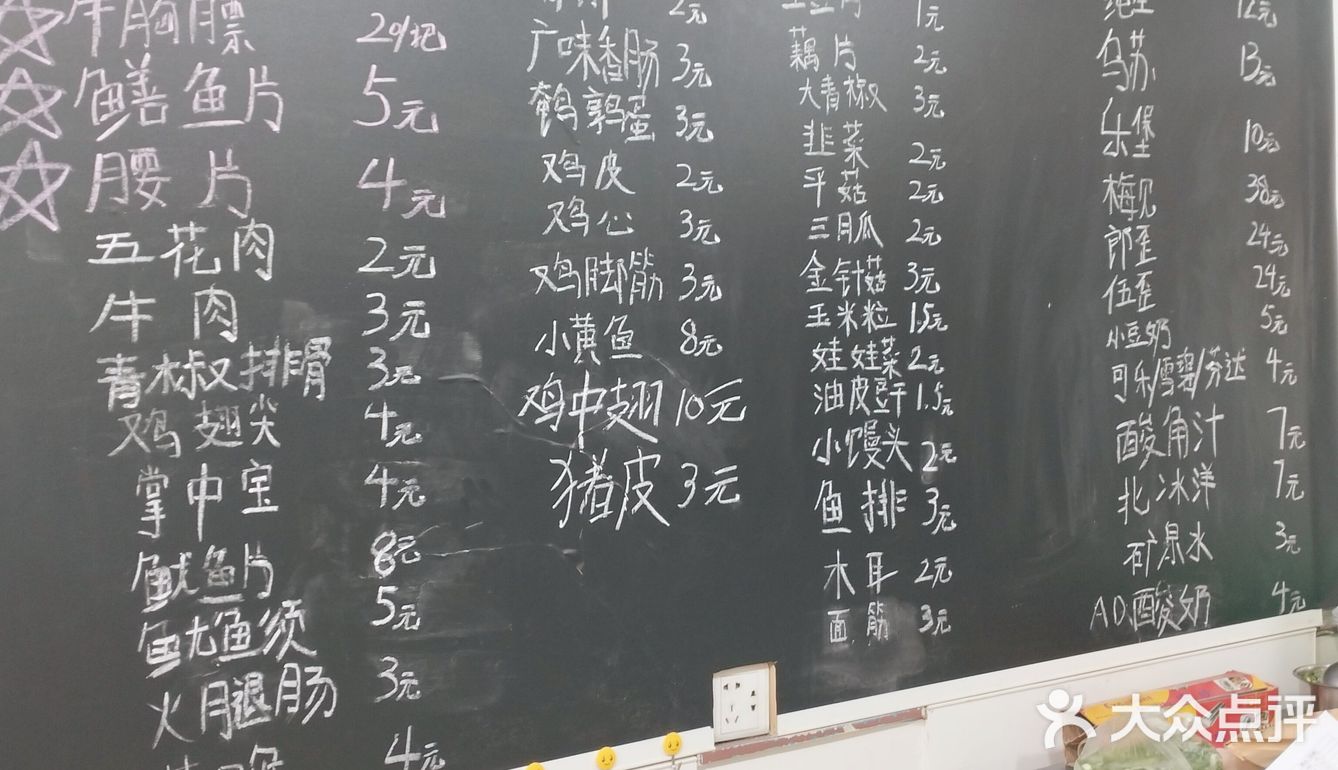 牛胸膘 20/把
鳝鱼片 5元
腰片 4元
五花肉 2元
牛肉 3元
青椒排骨 3元
鸡翅尖 4元
掌中宝 4元
鱿鱼片 8元
鱿鱼须 5元
火腿肠 3元
4元
2元
广味香肠 3元
鹌鹑蛋 3元
鸡皮 2元
鸡心 3元
鸡脚筋 3元
小黄鱼 8元
鸡中翅 10元
猪皮 3元
1元
藕片 2元
大青椒 3元
韭菜 2元
平菇 2元
三月瓜 2元
金针菇 3元
玉米粒 1.5元
娃娃菜 2元
油皮豆干 1.5元
小馒头 2元
鱼排 3元
木耳 2元
面筋 3元
纯生 12元
乌苏 13元
乐堡 10元
梅见 38元
郎歪 24元
伍歪 24元
小豆奶 5元
可乐/雪碧/芬达 4元
酸角汁 7元
北冰洋 7元
矿泉水 3元
AD酸奶 4元
大众点评